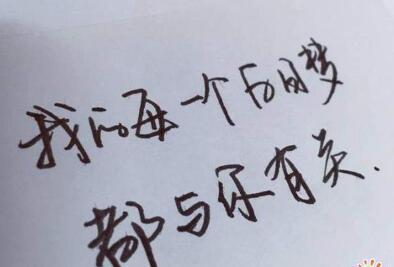 我的每一个白日梦
都与你有关.